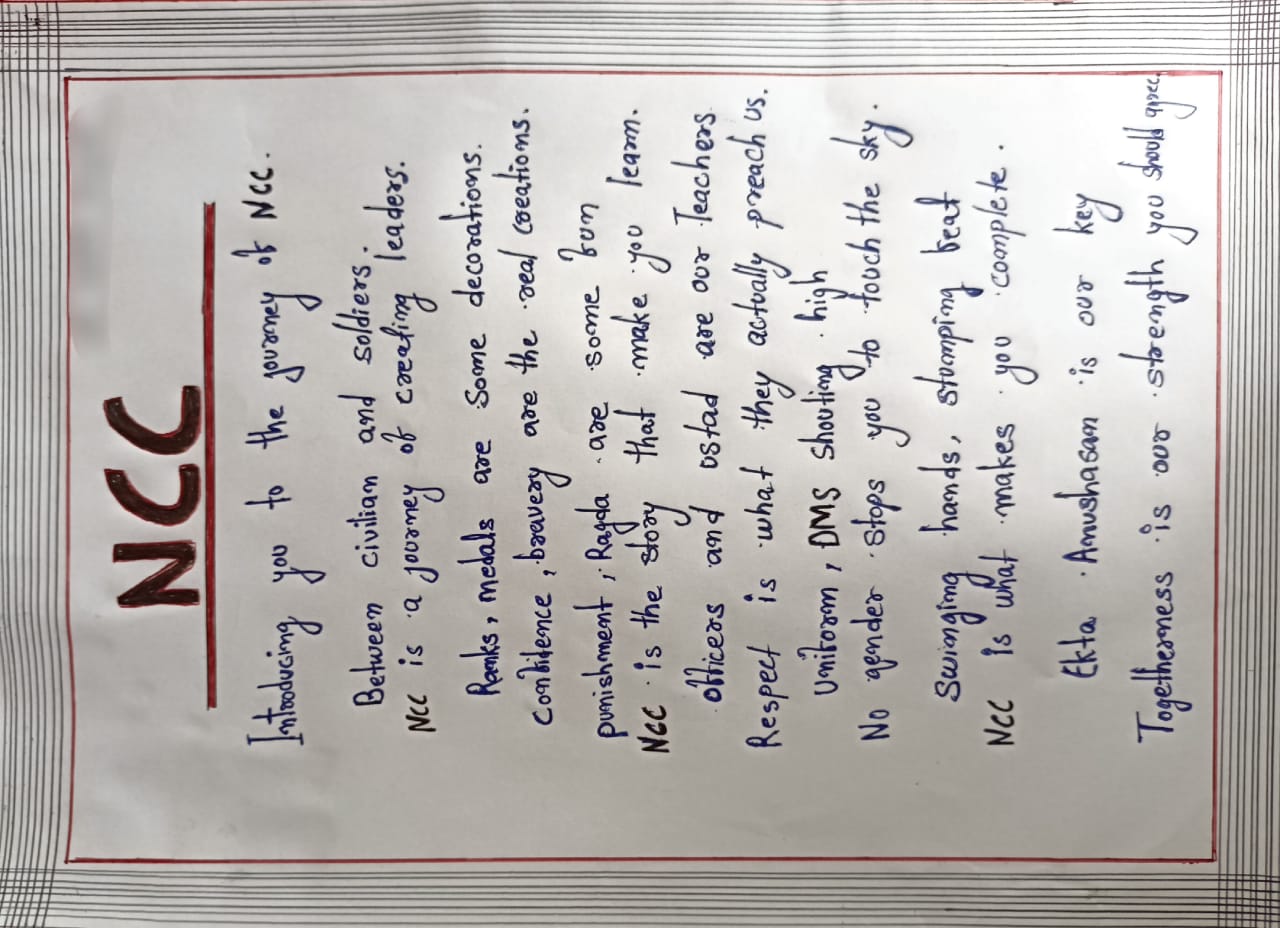 NCC
Introducing you to the journey of NCC.
Between civilian and soldiers.
NCC is a journey of creating leaders.
Ranks, medals are some decorations.
Confidence, bravery are the real creations.
punishment, Ragda are some fun
NCC is the story that make you learn.
officers and ustad are our Teachers
Respect is what they actually preach us.
Uniform, DMS shouting high
No gender stops you to touch the sky.
Swinging hands, stamping feat
NCC is what makes you complete.
Ekta Anushasan is our key
Togetherness is our strength you should agree.